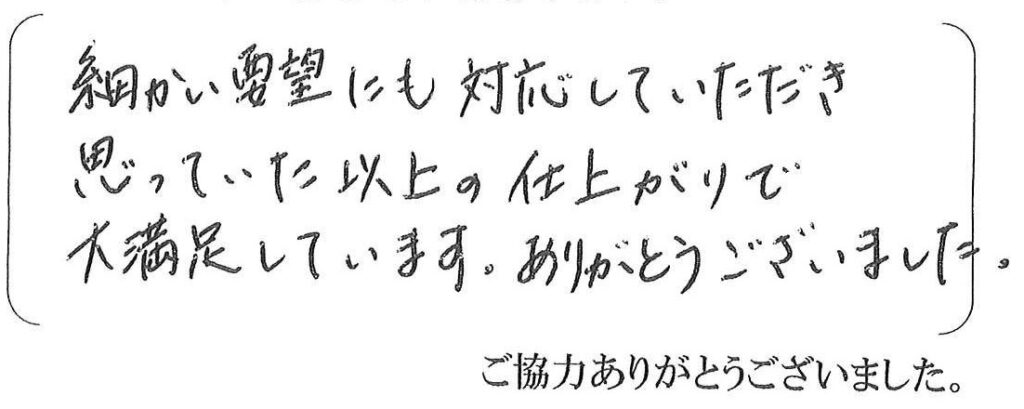 細かい要望にも対応していただき
思っていた以上の仕上がりで
大満足しています。ありがとうございました。
ご協力ありがとうございました。